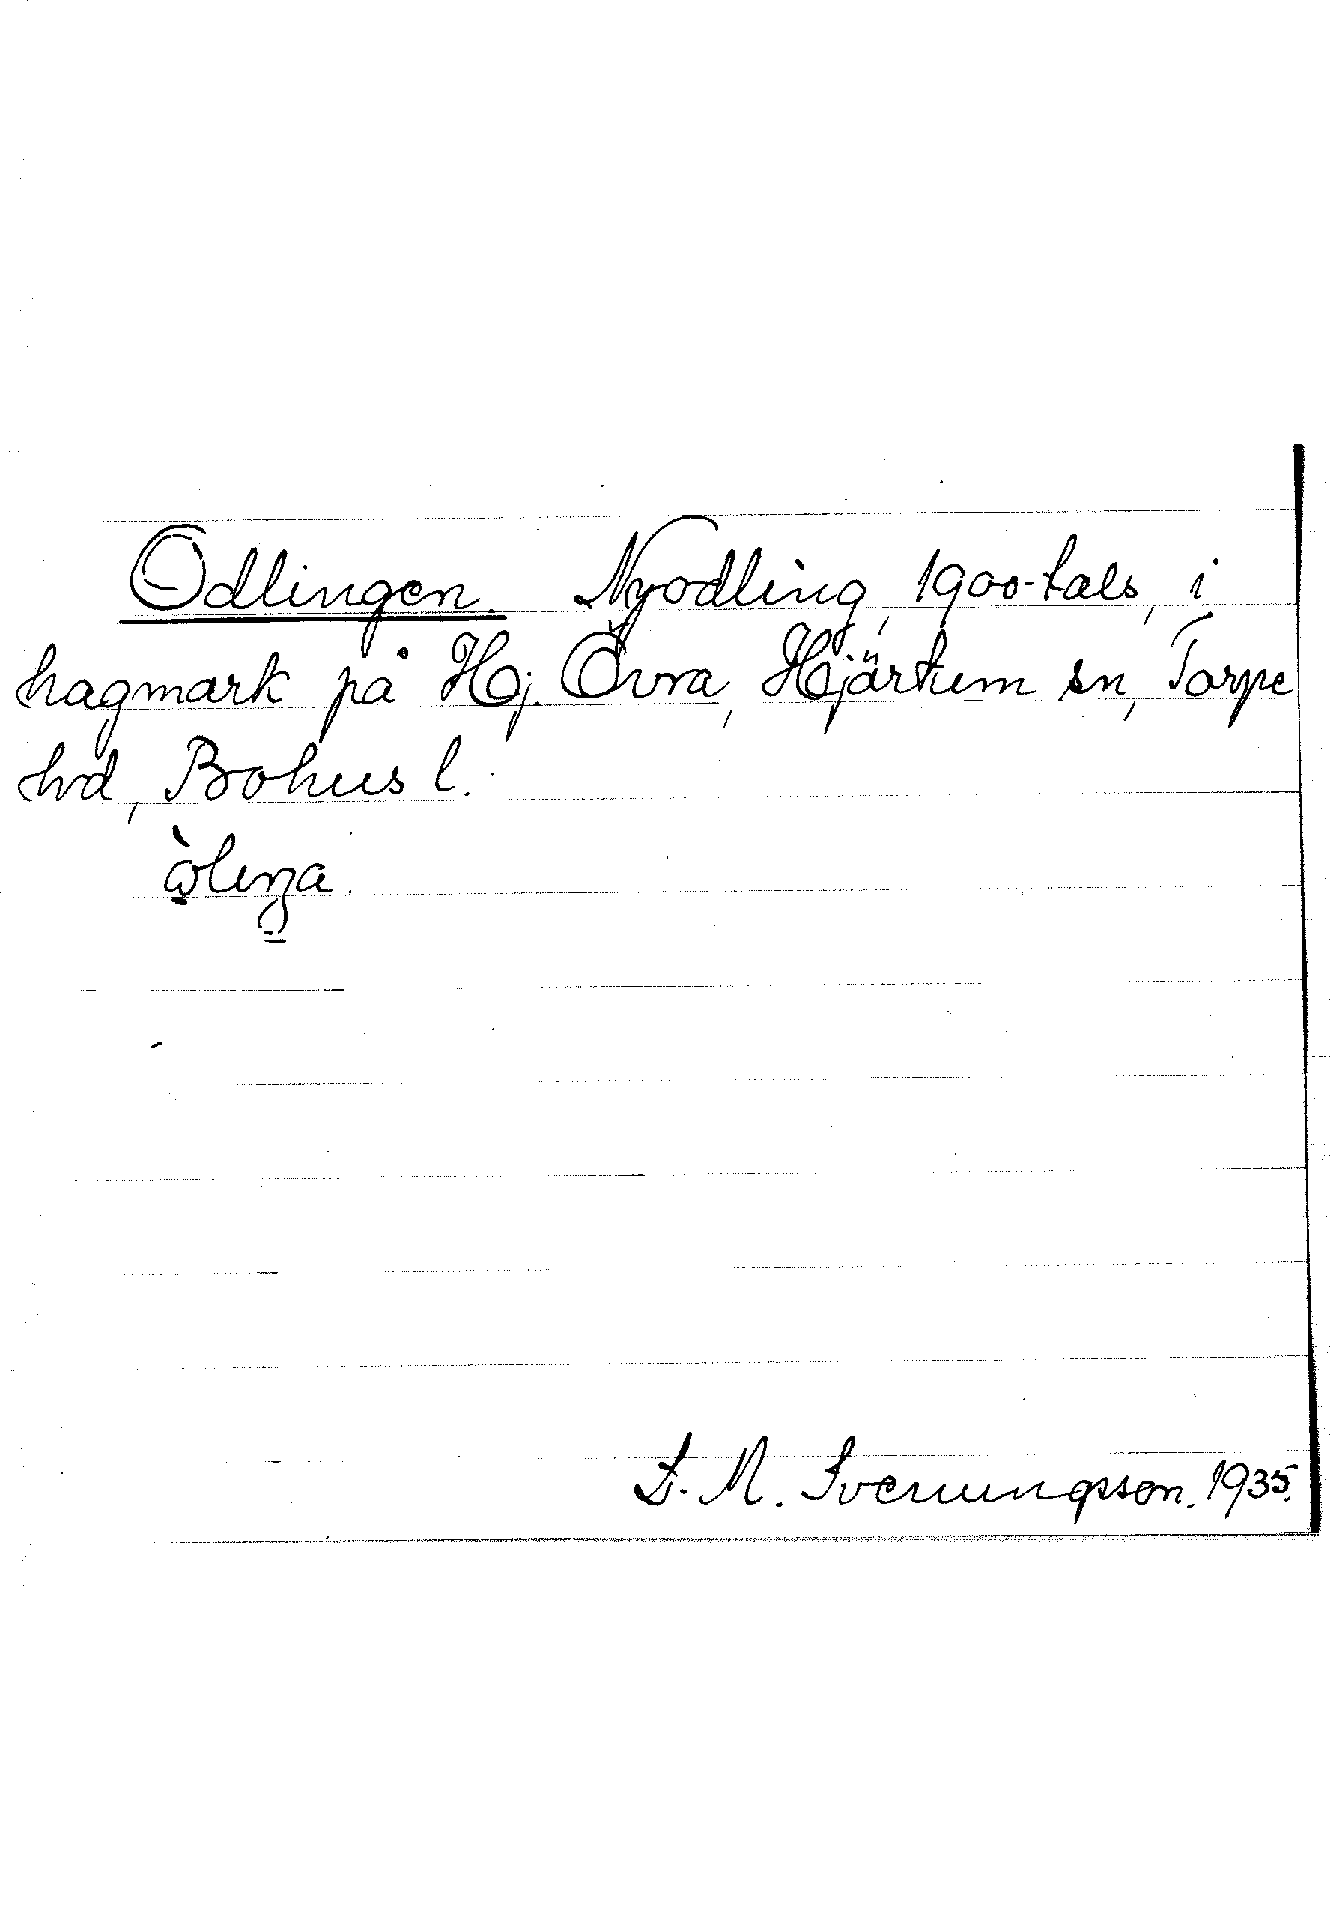 Odlingen. Nyodling, 1900-tals, i
hagmark på Hj. Övra, Hjärtum sn, Torpe
hd, Bohus l.
L. M. Svenungsson. 1935.